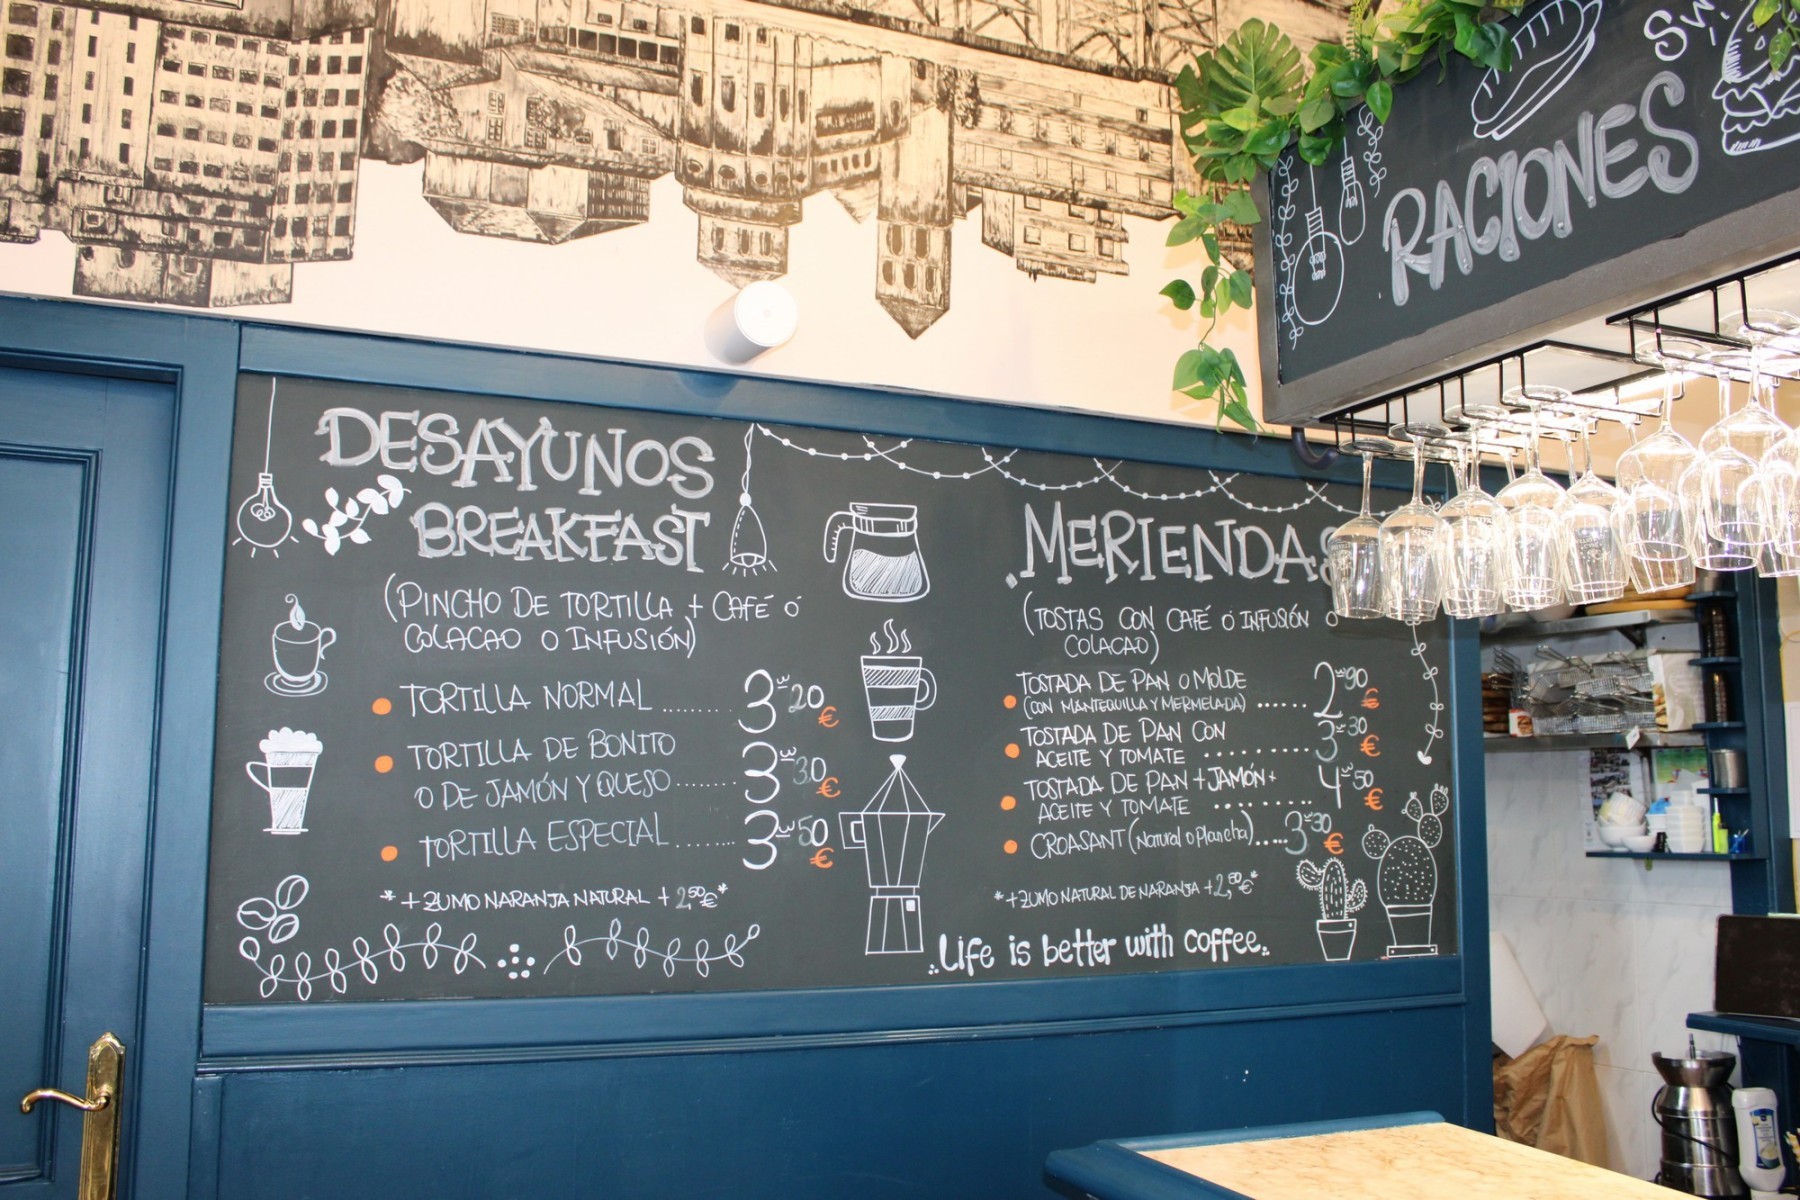 DESAYUNOS
BREAKFAST
(PINCHO DE TORTILLA + CAFÉ Ó
COLACAO O INFUSIÓN)
TORTILLA NORMAL ........ 3'20 €
TORTILLA DE BONITO
O DE JAMÓN Y QUESO ........ 3'30 €
TORTILLA ESPECIAL ........ 3'50 €
* + ZUMO NARANJA NATURAL + 2,50€ *
MERIENDAS
(TOSTAS CON CAFÉ Ó INFUSIÓN O
COLACAO)
TOSTADA DE PAN O MOLDE
(CON MANTEQUILLA Y MERMELADA) ...... 2'90 €
TOSTADA DE PAN CON
ACEITE Y TOMATE .......... 3'30 €
TOSTADA DE PAN + JAMÓN +
ACEITE Y TOMATE .......... 4'50 €
CROASANT (Natural o Plancha)..... 3'30 €
* + ZUMO NATURAL DE NARANJA + 2,50€ *
Life is better with coffee..
RACIONES